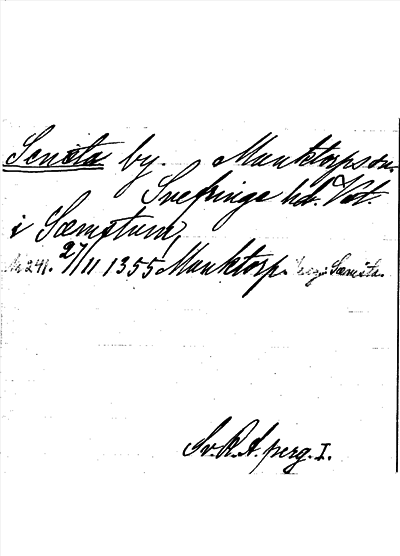 Senåta by. Munktorpson.
Snefringe hd. Vstl.
i Sæmstum,
Nr 241. 27/11 1355 Munktorp. Sæmsta.
Sv. R. A. perg. I.